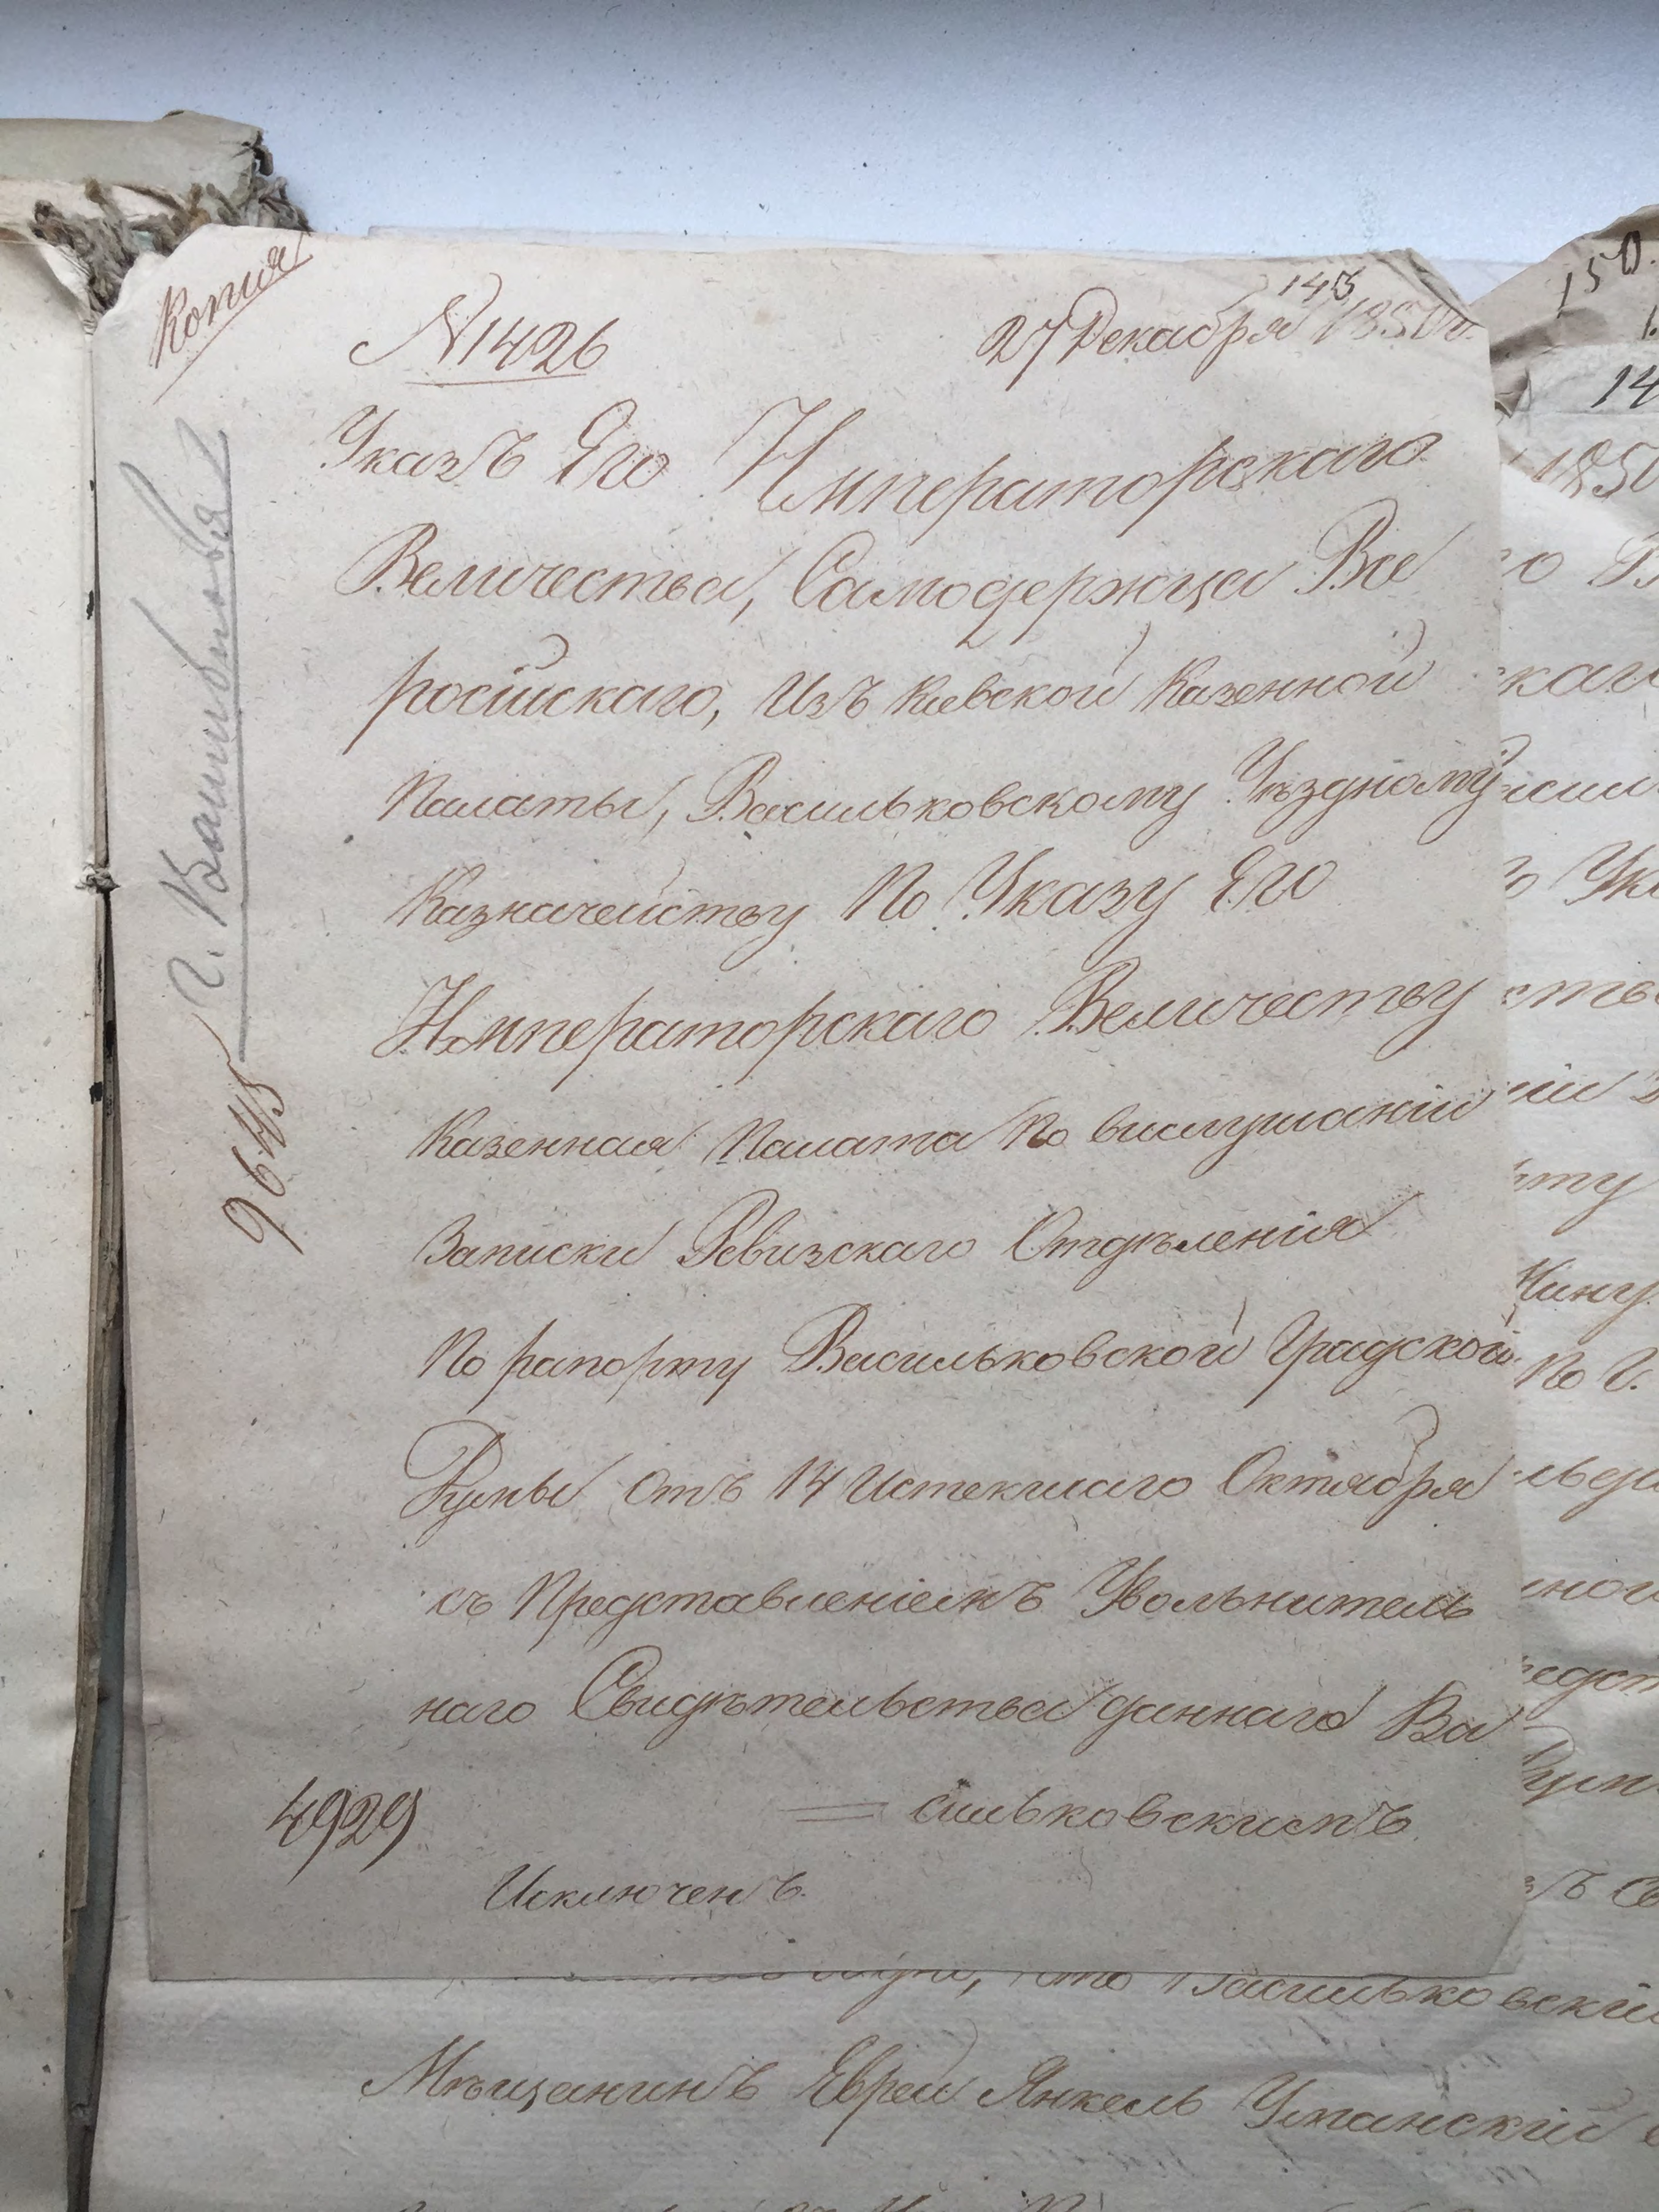 Копія
145
№ 1426
27 Декабря 1850 г.
Указъ Его Императорскаго
Величества, Самодержца Все
росiйскаго, Изъ Киевской Казенной
Палаты, Васильковскому Уѣздному
Казначейству По Указу Его
Императорскаго Величеству
Казенная Палата По вислушаніи
Записки Ревизскаго Отдѣленія
По рапорту Васильковской Градской
Думы отъ 14 Истекшаго Октября
съ Представленіемъ Увольнитель
наго Свидѣтельства даннаго Ва
= сильковскимъ
4929
Исключенъ.
9645
Г.
150.
14
1850
скаго
Ука
ому
По Г.
что Васильковскій
Мѣщанинъ Еврей Янкель Уманскій